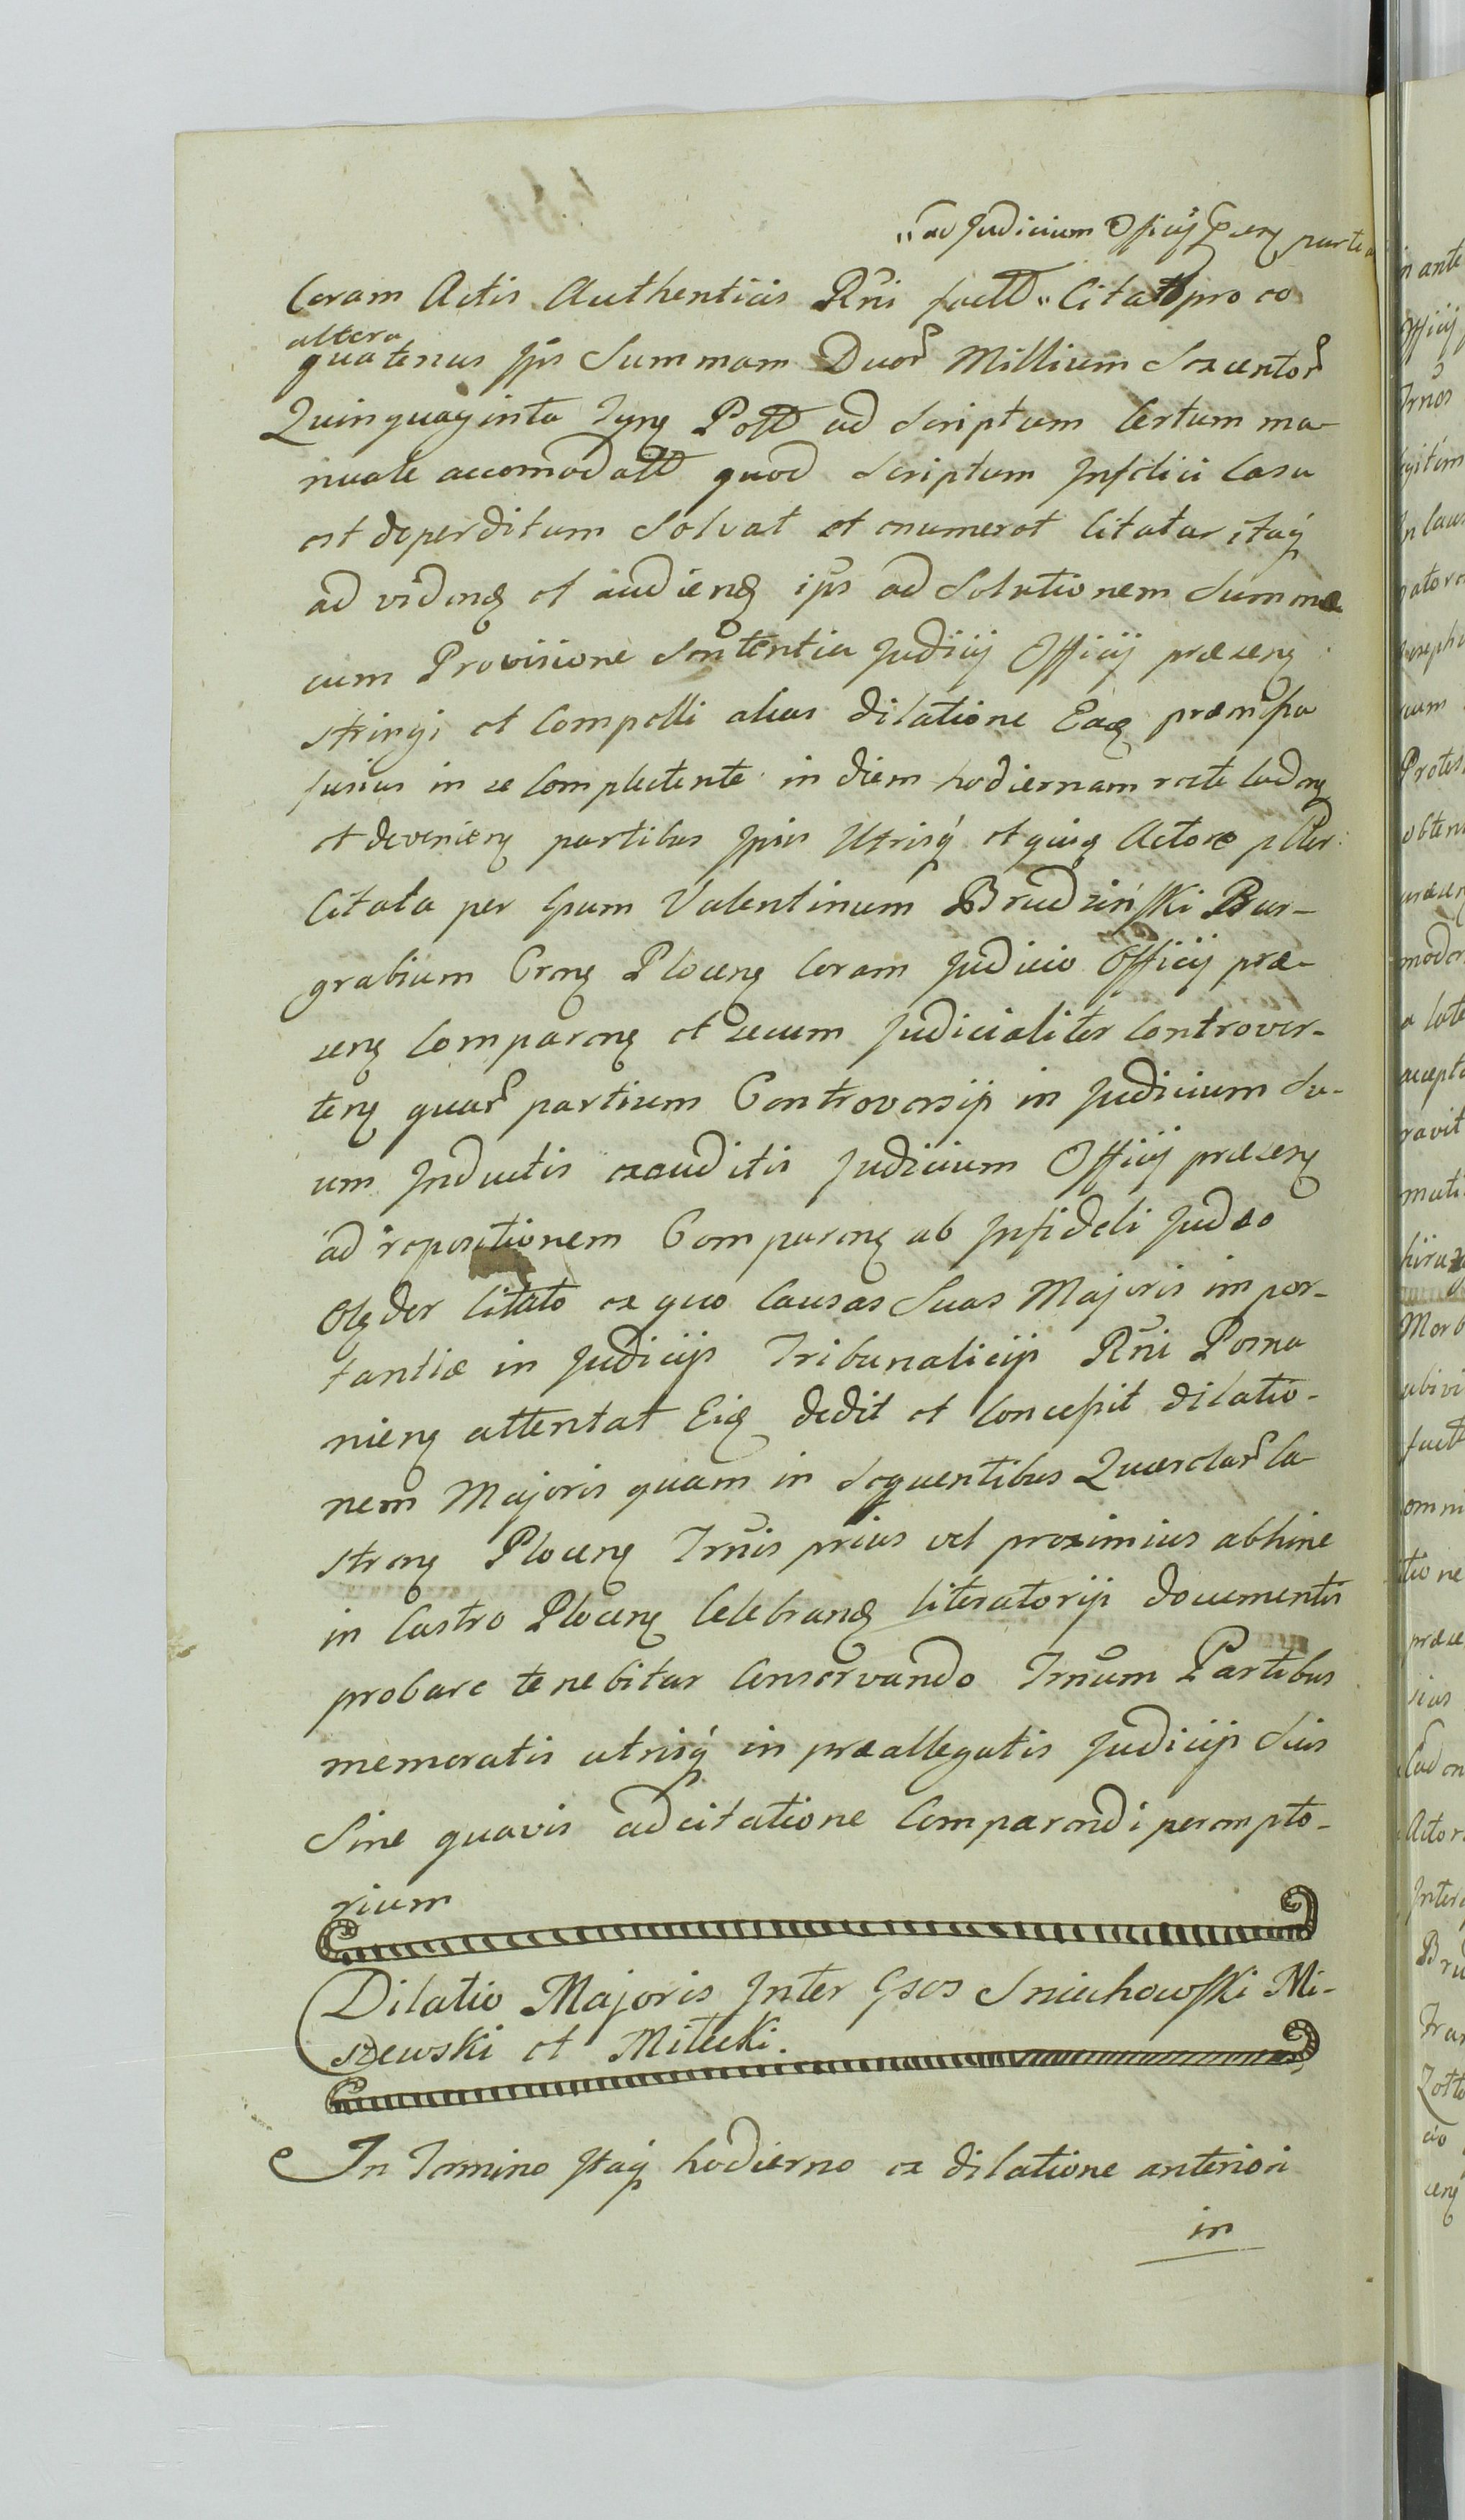 „ad Judicium Officij Präsenꝫ parte
Coram Actis Authenticis Rñi fact „ Citat pro eo
altera
quatenus Ipsi Summam Duor Millium Sexentor
Quinquaginta Tynꝫ Poll ad Scriptum Certum ma-
nuale accomodatt quod Scriptum Infelici Casu
est deperditum Solvat et enumeret Citatur itaq́
ad videnꝫ et audienꝫ ip̃s ad Solutionem Summæ
cum Provisione Sententia Judicij Officij præsenꝫ
stringi et Compelli alias dilatione Eaꝫ præmissa
fusius in se Complectente in diem hodiernam recte Cadenꝫ
et devenienꝫ partibus Ipsis Utrisq́ et quiꝫ Actore
Citata per Gsum Valentinum Brudzińsski Bur-
grabium Crenꝫ Plocenꝫ Coram Judicio Officij præ-
senꝫ Comparenꝫ et secum Judicialiter Controver-
tenꝫ quar partium Controversijs in Judicium Su-
um Inductis exauditis Judicium Officij præsenꝫ
ad repositionem Comparenꝫ ab Infideli Judæo
Olꝫder Citato ex quo Causas Suas Majoris impor-
tantiæ in Judicijs Tribunalicijs Rñi Posna
nienꝫ attentat Eiꝫ dedit et Concessit dilatio-
nem Majoris quam in Sequentibus Querelar Ca-
strenꝫ Plocenꝫ Trñis prius vel proximius abhinc
in Castro Plocenꝫ Celebranꝫ literatorijs documentis
probare tenebitur Conservando Trñum Partibus
memoratis utrisq́ in præallegatis Judicijs Suis
Sine quavis adcitatione Comparendi perempto-
rium
Dilatio Majoris Inter Gsos Sniechowsski Mi-
szewski et Milecki.
In Termino Itaq́ hodierno ex dilatione anteriori
in